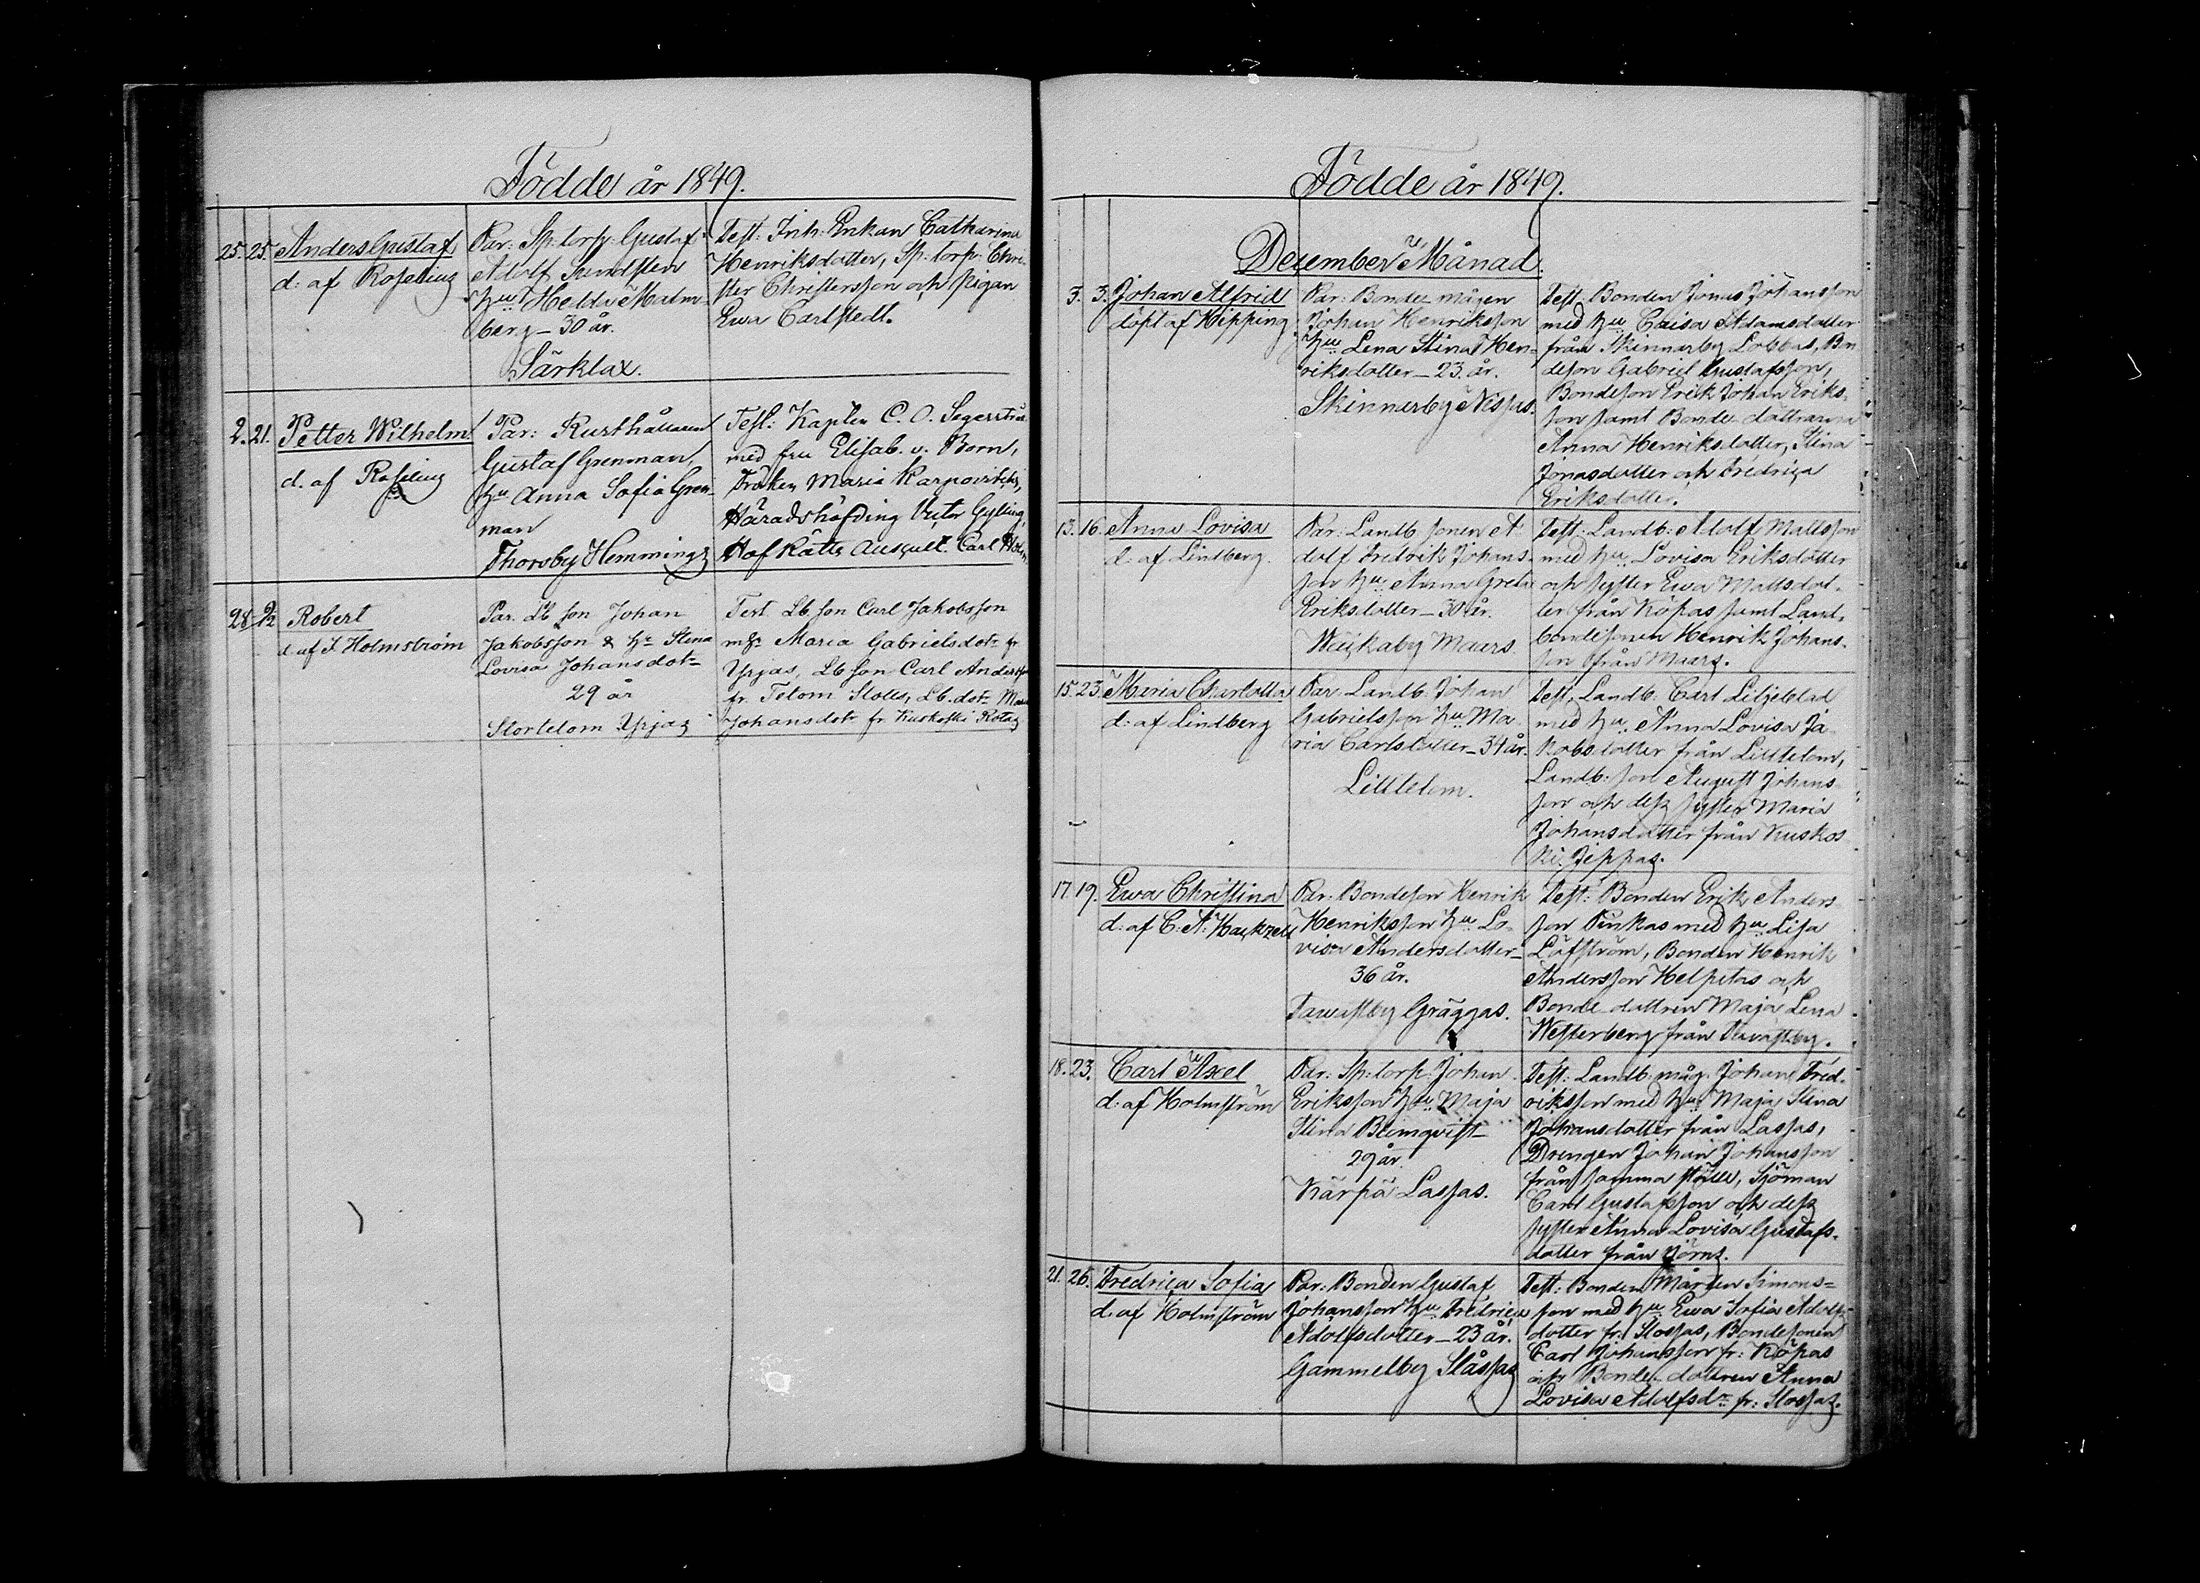 Födde år 1849.
25. 25. Anders Gustaf
d: af Roseling
Par: Sp: torp: Gustaf
Adolf Sundsten
hu Hedda Malm-
berg – 30 år.
Särklax.
Test: Inh: Enkan Catharina
Henriksdotter, Sp: torp: Chri-
ster Christersson och pigan
Ewa Carlstedt.
2. 21. Petter Wilhelm
d. af Roseling
Par: Rusthållaren
Gustaf Grenman,
hu Anna Sofia Gren-
man
Thorsby Hemmings
Test: Kapten C. O. Segerstråle
med fru Elisab. v. Born,
Fröken Maria
Häradshöfding Victor Gylling,
Hof Rätts Auscult. Carl
28 2/12 Robert
d. af J Holmström
Par. Lb son Johan
Jakobsson & hu Stina
Lovisa Johansdotr
29 år
Stortelom Yrjas
Test Lb son Carl Jakobsson
m hu Maria Gabrielsdotr fr
Yrjas, Lb son Carl Andersson
fr. Telom Stolls, Lb. dotr Maria
Johansdotr fr Kuskoski Rotas
Födde år 1849.
December Månad.
3. 3. Johan Alfrid
döpt af Hipping
Par: Bonde mågen
Johan Henriksson
hu Lena Stina Hen-
riksdotter – 23 år.
Skinnarby Nissas.
Test: Bonden Jonas Johansson
med hu Caisa Adamsdotter
från Skinnarby Lobbas, Bon
deson Gabriel Gustafsson,
Bondeson Erik Johan Eriks-
son samt Bonde döttrarna
Anna Henriksdotter, Stina
Jonasdotter och Fredrica
Eriksdotter.
13. 16. Anna Lovisa
d: af Lindberg
Par: Landb. sonen A
dolf Fredrik Johans-
son hu Anna Greta
Eriksdotter – 30 år.
Wäckaby Maars.
Test: Landb: Adolf Mattsson
med hu Lovisa Eriksdotter
och syster Ewa Mattsdot-
ter från Köpas samt Land-
bondesonen Henrik Johans-
son från Maars.
15. 23. Maria Charlotta
d: af Lindberg
Par: Landb: Johan
Gabrielsson hu Ma-
ria Carlsdotter – 34 år.
Lilltelom.
Test: Landb: Carl Liljeblad
med hu Anna Lovisa Ja-
kobsdotter från Lilltelom,
Landb: son August Johans-
son och dess syster Maria
Johansdotter från Kuskos
ki Jeppas.
17. 19. Ewa Christina
d: af C: A: Hackzell
Par: Bondeson Henrik
Henriksson hu Lo-
visa Andersdotter –
36 år.
Tavastby Gräggas.
Test: Bonden Erik Anders-
son Pinkas med hu Lisa
Löfström, Bonden Henrik
Andersson Helpitas och
Bonde dottren Maja Lena
Westerberg från Tavastby.
18. 23. Carl Axel
d: af Holmström
Par: Sp: torp: Johan
Eriksson hu Maja
Stina Blimqvist –
29 år.
Kärpä Lassas.
Test: Landb: måg. Johan Fred-
riksson med hu Maja Stina
Johansdotter från Lassas,
Drengen Johan Johansson
från samma ställe, Sjöman
Carl Gustafsson och dess
syster Anna Lovisa Gustafs-
dotter från Jörns.
21. 26. Fredrica Sofia
d: af Holmström
Par: Bonden Gustaf
Johansson hu Fredrica
Adolfsdotter – 23 år.
Gammelby Slåssas
Test: Bonden Mårten Simons-
son med hu Ewa Sofia Adolfs-
dotter fr: Slossas, Bondesonen
Carl Johansson fr: Köpas
och Bonde dottren Anna
Lovisa Adolfsdr fr: Slossas.